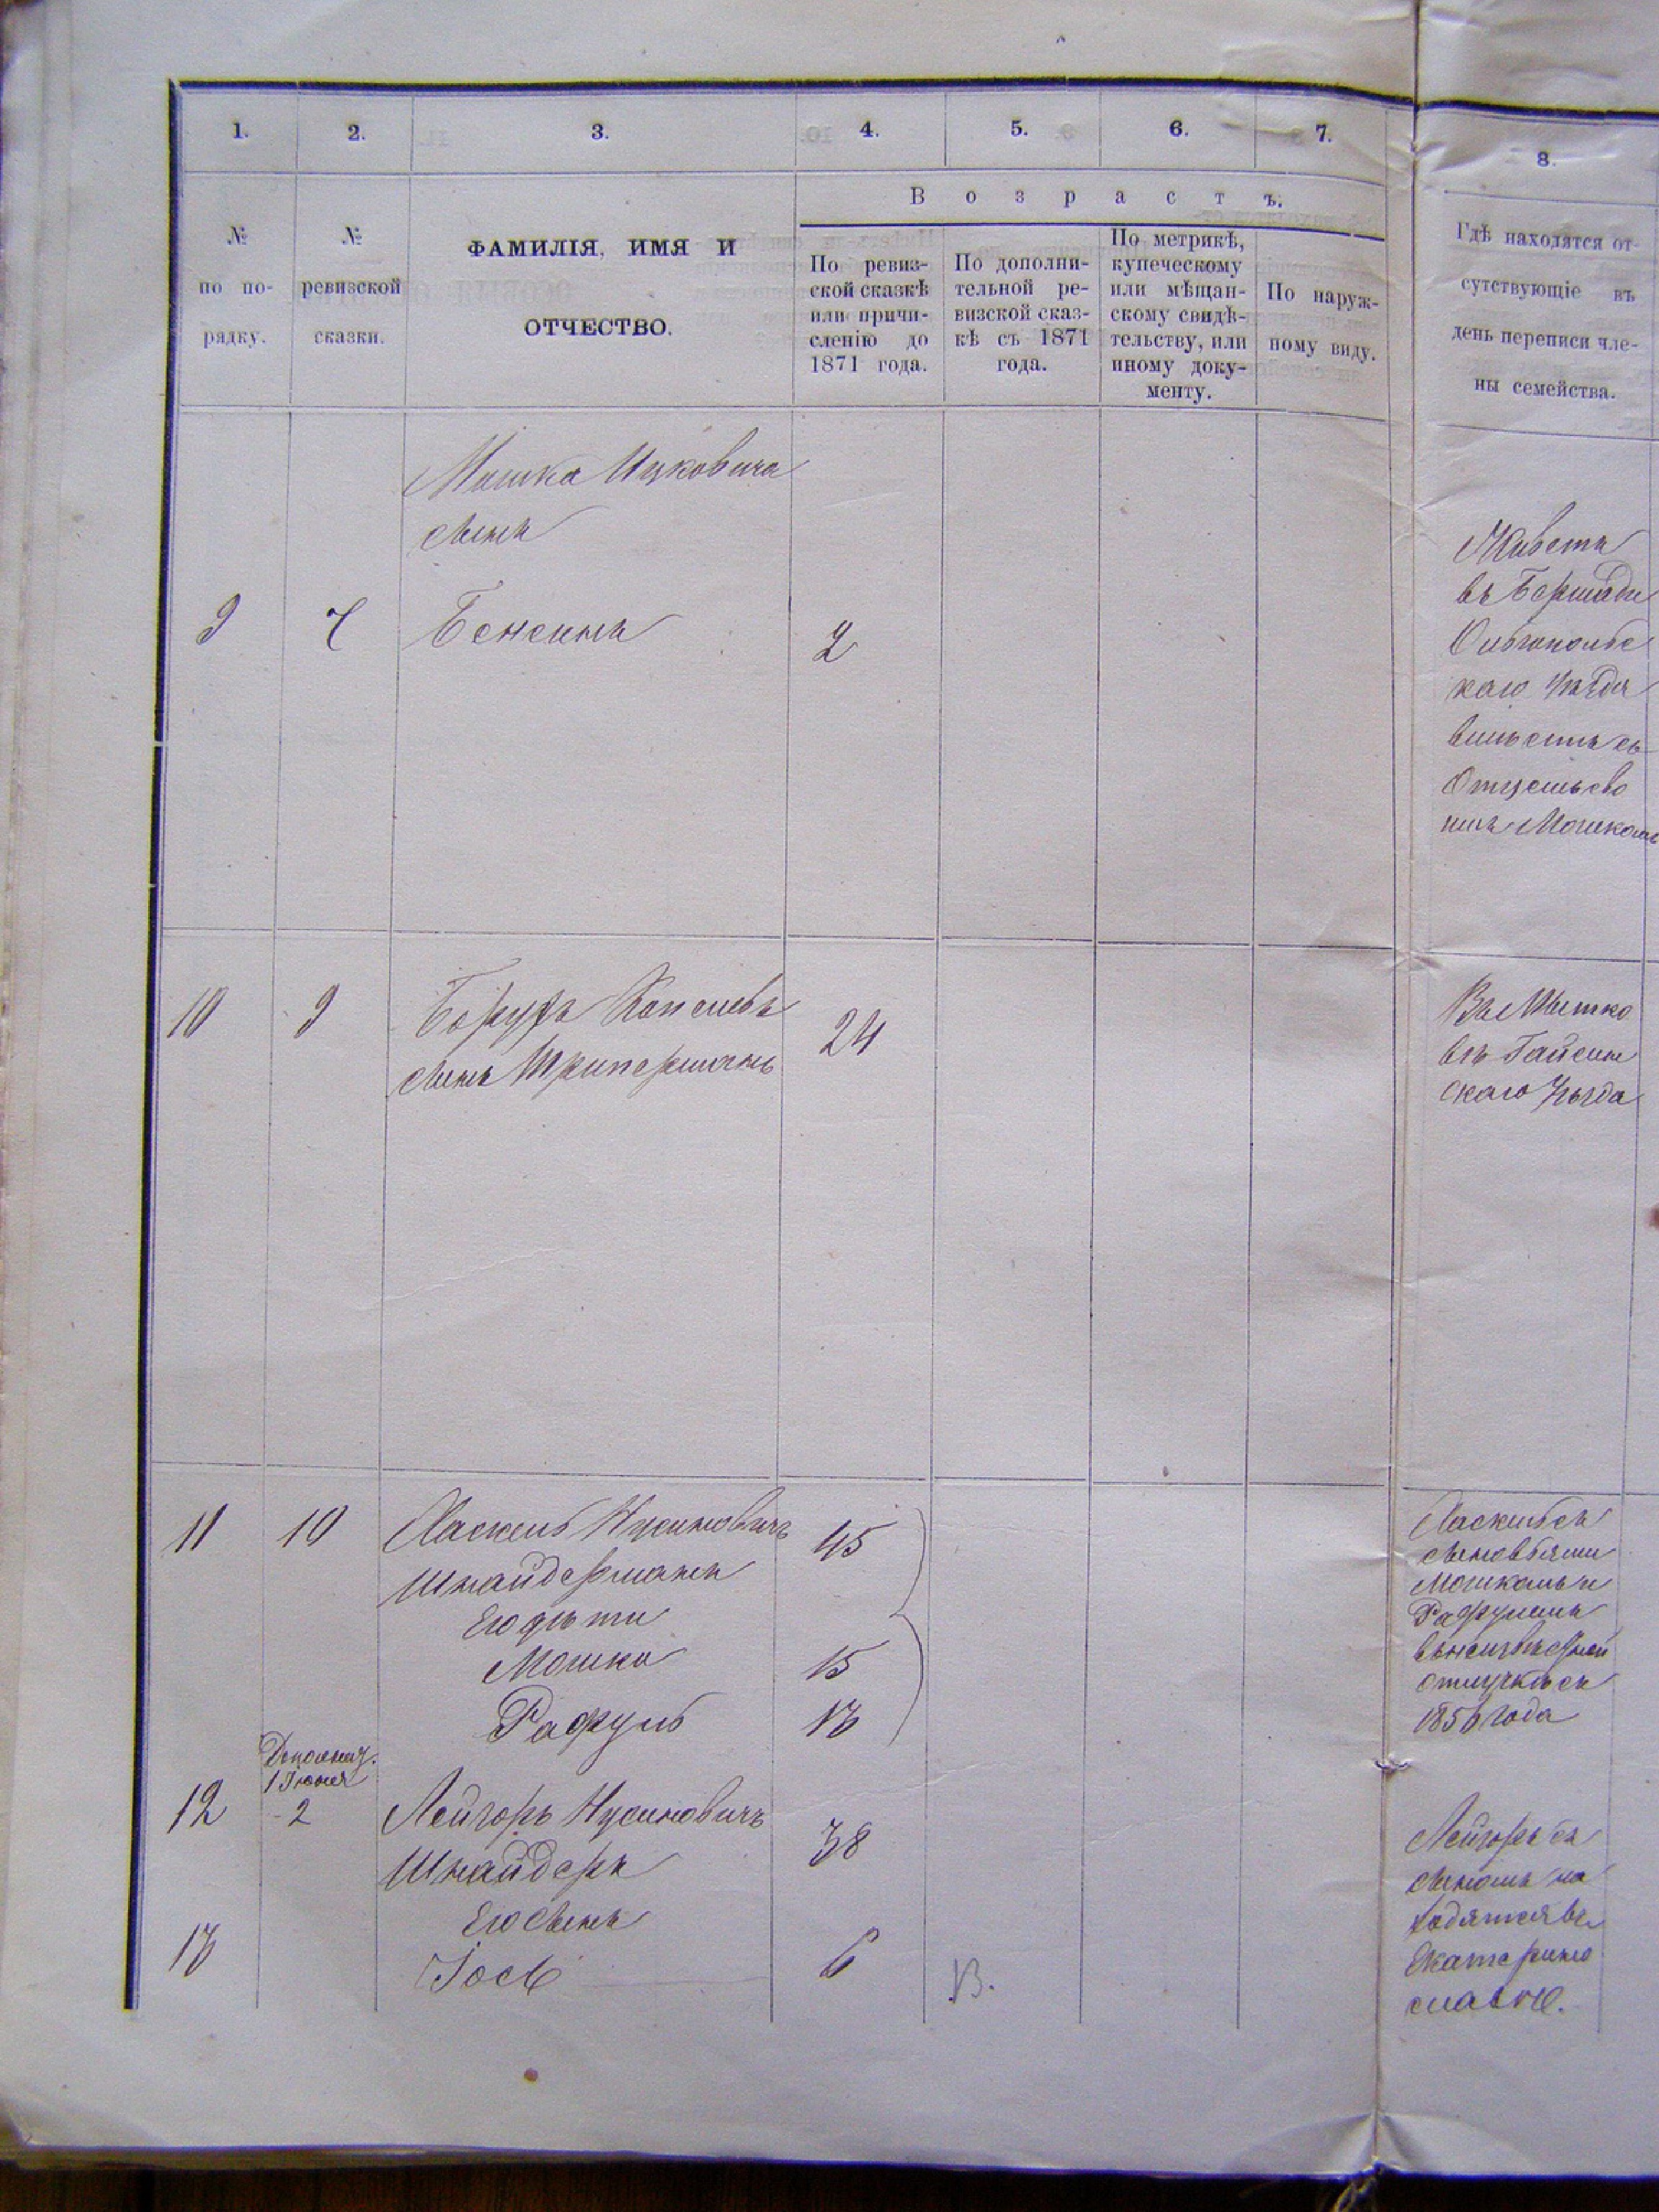 1. 2. 3. 4. 5. 6. 7. 8.
№
по по-
рядку.
№
ревизской
сказки.
ФАМИЛІЯ, ИМЯ И
ОТЧЕСТВО.
Возрастъ.
По ревиз-
ской сказкѣ
или причи-
сленію до
1871 года.
По дополни-
тельной ре-
визской сказ-
кѣ съ 1871
года.
По метрикѣ,
купеческому
или мѣщан-
скому свидѣ-
тельству, или
иному доку-
менту.
По наруж-
ному виду.
Гдѣ находятся от-
сутствующіе въ
день переписи чле-
ны семейства.
Мошка Ицковича
сынъ
9 7 Бенсинъ 2
Живетъ
въ Бершади
Ольгопольс
каго Уѣзда
вмѣстѣ съ
Отцемъ сво
имъ Мошкомъ
10 9 Борухъ Копелевъ 24
сынъ Шриперманъ
Въ Мытко
вѣ Гайсин
скаго Уѣзда
11 10 Хаскель Нусиновичъ 45
Шнайдерманъ
Его дѣти
Мошко 15
Рафуль 13
Хаскель съ
сыновьями
Мошкомъ и
Рафулемъ
въ неизвѣстной
отлучкѣ съ
1856 года
Дополнит.
1 Іюня
12 2 Лейзоръ Нусиновичъ 38
Шнайдеръ
Его сынъ
13 Іось 6 13.
Лейзоръ съ
сыномъ на
ходятся въ
Екатерино
славѣ.